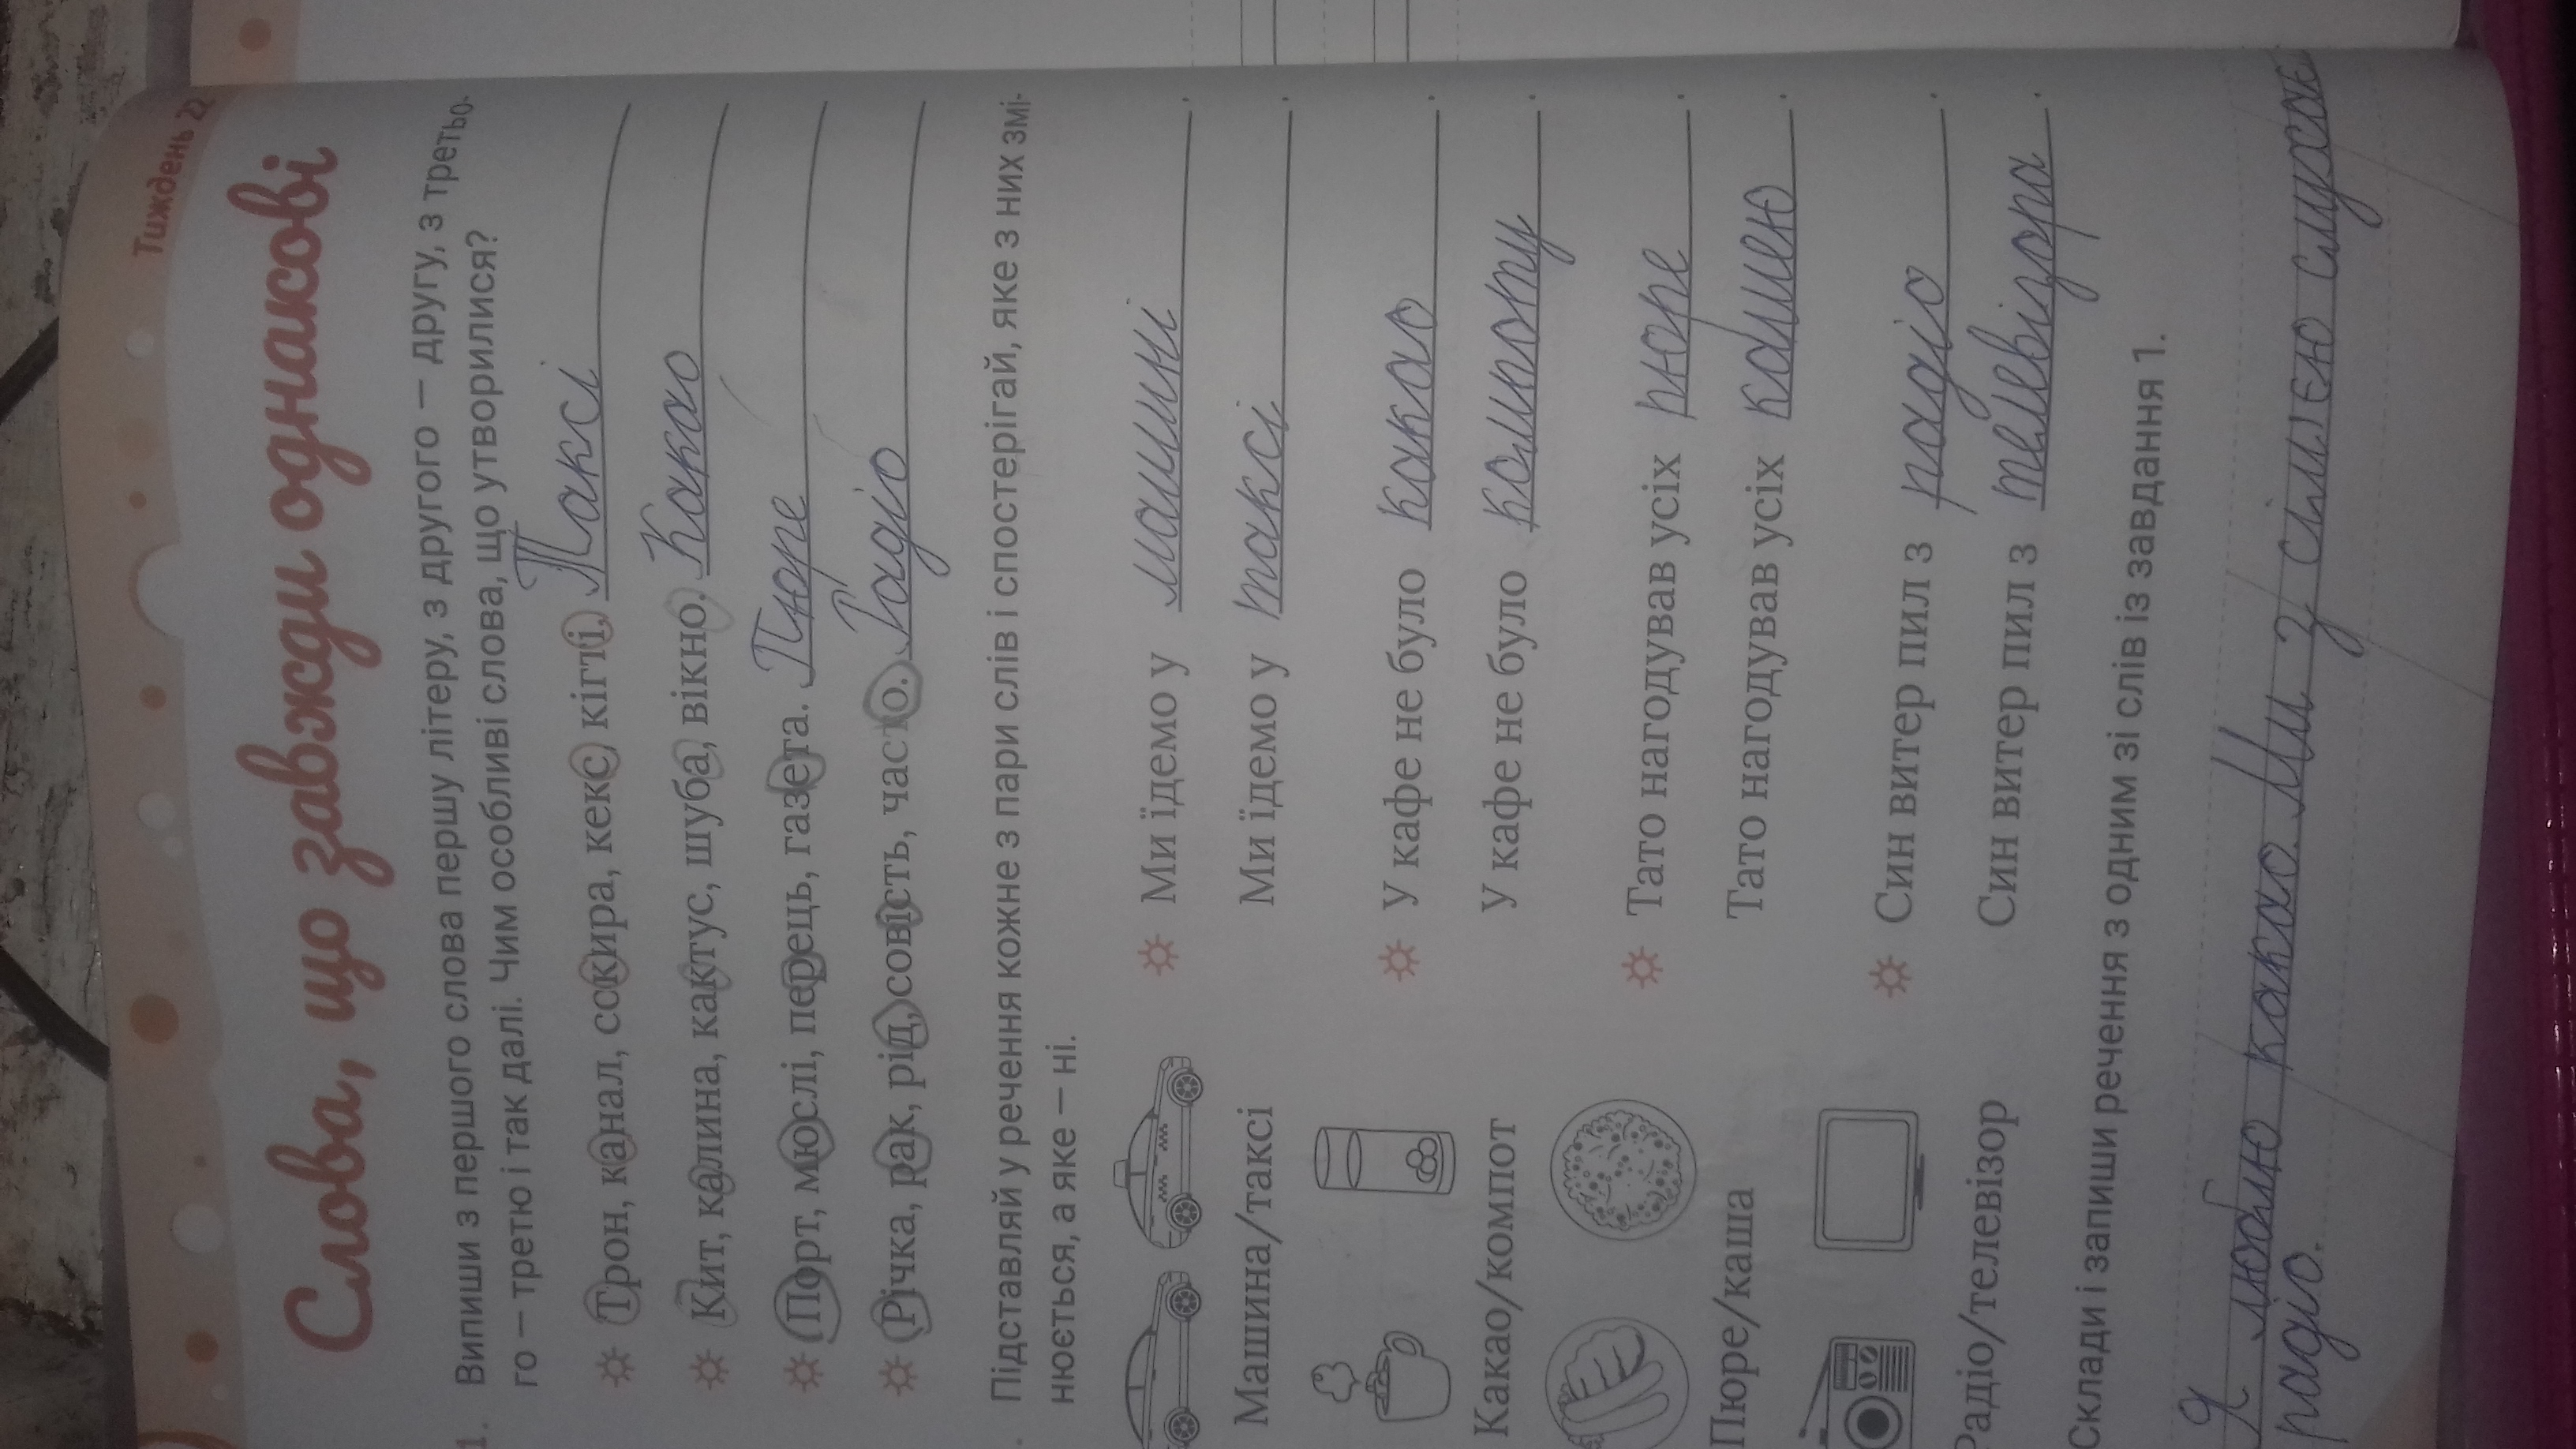 Тиждень 22
Слова, що завжди однакові
1. Випиши з першого слова першу літеру, з другого — другу, з третьо-
го — третю і так далі. Чим особливі слова, що утворилися?
Трон, канал, сокира, кекс, кігті. Таксі
Кит, калина, кактус, шуба, вікно. Какао
Порт, мюслі, перець, газета. Пюре
Річка, рак, рід, совість, часто. Радіо
Підставляй у речення кожне з пари слів і спостерігай, яке з них змі-
нюється, а яке — ні.
Машина/таксі
Ми їдемо у машині.
Ми їдемо у таксі.
Какао/компот
У кафе не було какао.
У кафе не було компоту.
Пюре/каша
Тато нагодував усіх пюре.
Тато нагодував усіх кашею.
Радіо/телевізор
Син витер пил з радіо.
Син витер пил з телевізора.
Склади і запиши речення з одним зі слів із завдання 1.
Я люблю какао. Ми з сім'єю
радіо.